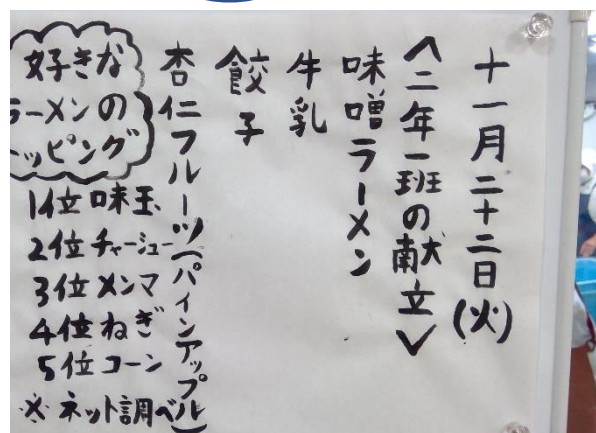 十一月二十二日(火)
<二年一班の献立>
味噌ラーメン
牛乳
餃子
杏仁フルーツ(パインアップル)
好きな
ラーメンの
トッピング
1位味玉
2位チャーシュー
3位メンマ
4位ねぎ
5位コーン
※ネット調べ